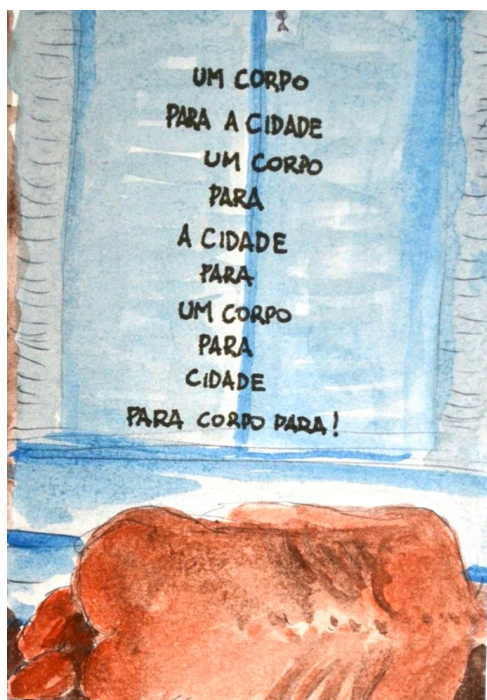 UM CORPO
PARA A CIDADE
UM CORPO
PARA
A CIDADE
PARA
UM CORPO
PARA
CIDADE
PARA CORPO PARA!